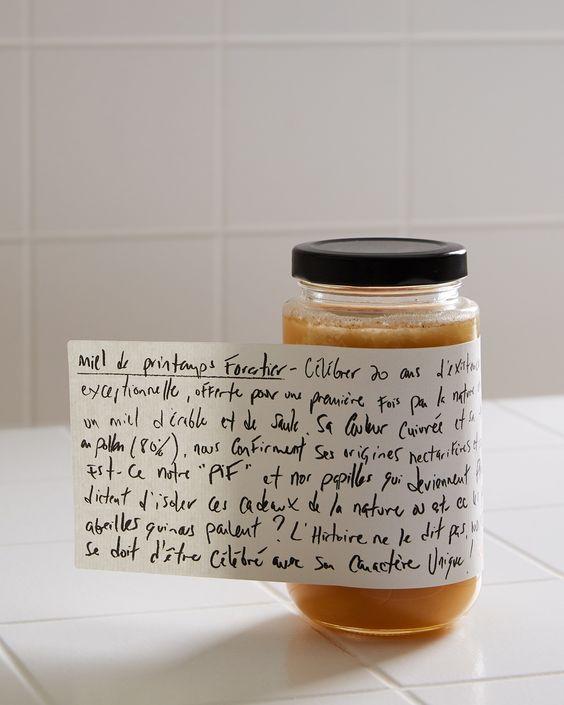 Miel de printemps Forestier - Célébrer 20 ans d'existen
exceptionnelle, offerte pour une première fois par la nature
un miel d'érable et de saule. Sa couleur cuivrée et sa
en pollen (80%), nous confirment ses origines nectarifères et
Est-ce notre "PiF" et nos papilles qui deviennent
dictent d'isoler ces cadeaux de la nature ou et ce
abeilles qui nous parlent ? L'Histoire ne le dit pas,
se doit d'être Célébré avec son Caractère Unique !